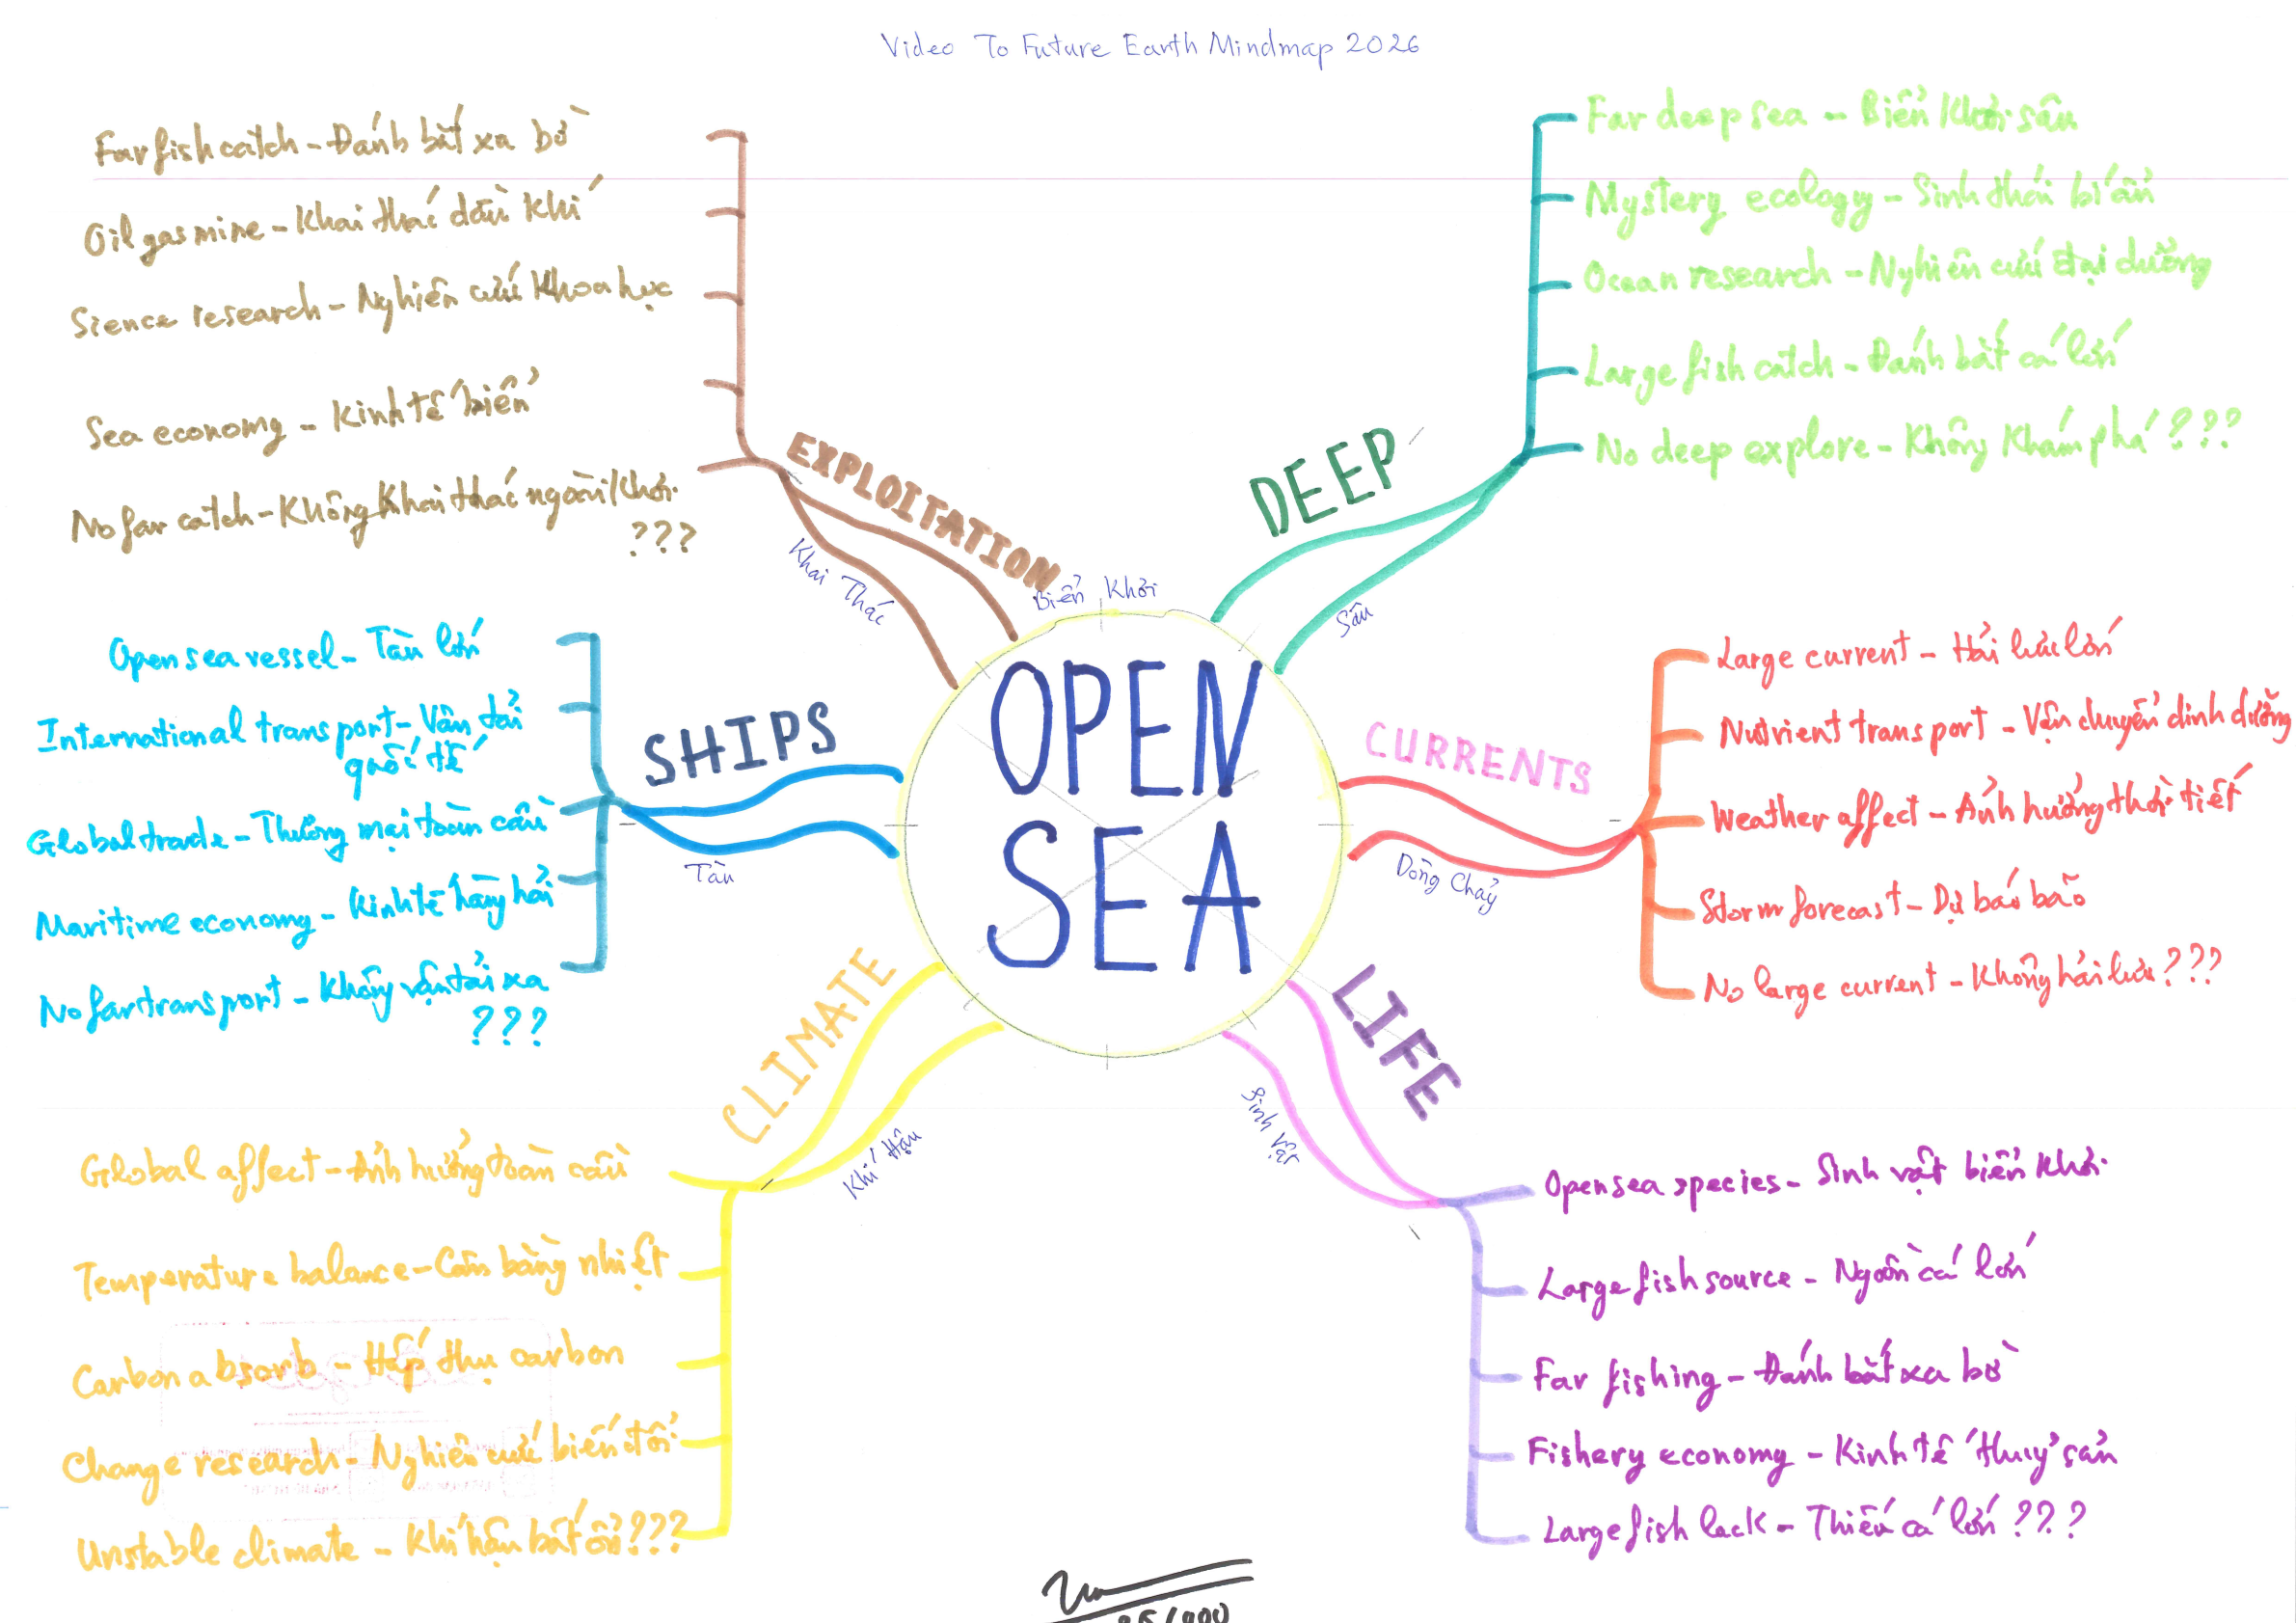 Video To Future Earth Mindmap 2026
Far fish catch - Đánh bắt xa bờ
Oil gas mine - Khai thác dầu khí
Sience research - Nghiên cứu khoa học
Sea economy - Kinh tế biển
No far catch - Không khai thác ngoài khơi
???
EXPLOITATION
Khai Thác
DEEP
Sâu
Far deep sea - Biển khơi sâu
Mystery ecology - Sinh thái bí ẩn
Ocean research - Nghiên cứu đại dương
Large fish catch - Đánh bắt cá lớn
No deep explore - Không khám phá ???
Biển Khơi
OPEN
SEA
Open sea vessel - Tàu lớn
International transport - Vận tải
quốc tế
Global trade - Thương mại toàn cầu
Maritime economy - Kinh tế hàng hải
No far transport - Không vận tải xa
???
SHIPS
Tàu
CURRENTS
Dòng Chảy
Large current - Hải lưu lớn
Nutrient transport - Vận chuyển dinh dưỡng
Weather affect - Ảnh hưởng thời tiết
Storm forecast - Dự báo bão
No large current - Không hải lưu ???
CLIMATE
Khí Hậu
Global affect - Ảnh hưởng toàn cầu
Temperature balance - Cân bằng nhiệt
Carbon absorb - Hấp thụ carbon
Change research - Nghiên cứu biến đổi
Unstable climate - Khí hậu bất ổn ???
LIFE
Sinh Vật
Open sea species - Sinh vật biển khơi
Large fish source - Nguồn cá lớn
Far fishing - Đánh bắt xa bờ
Fishery economy - Kinh tế thuỷ sản
Large fish lack - Thiếu cá lớn ???